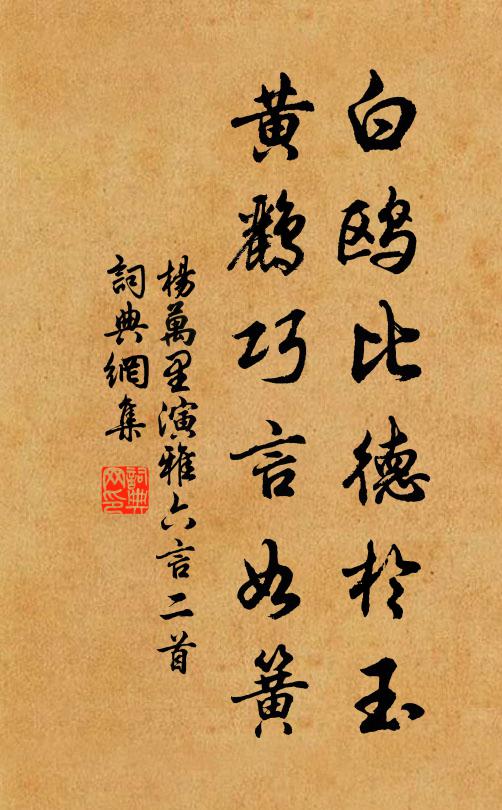 白鸥比德於玉
黄鹂巧言如簧
楊萬里演雅六言二首
詞典網集
詞典網印